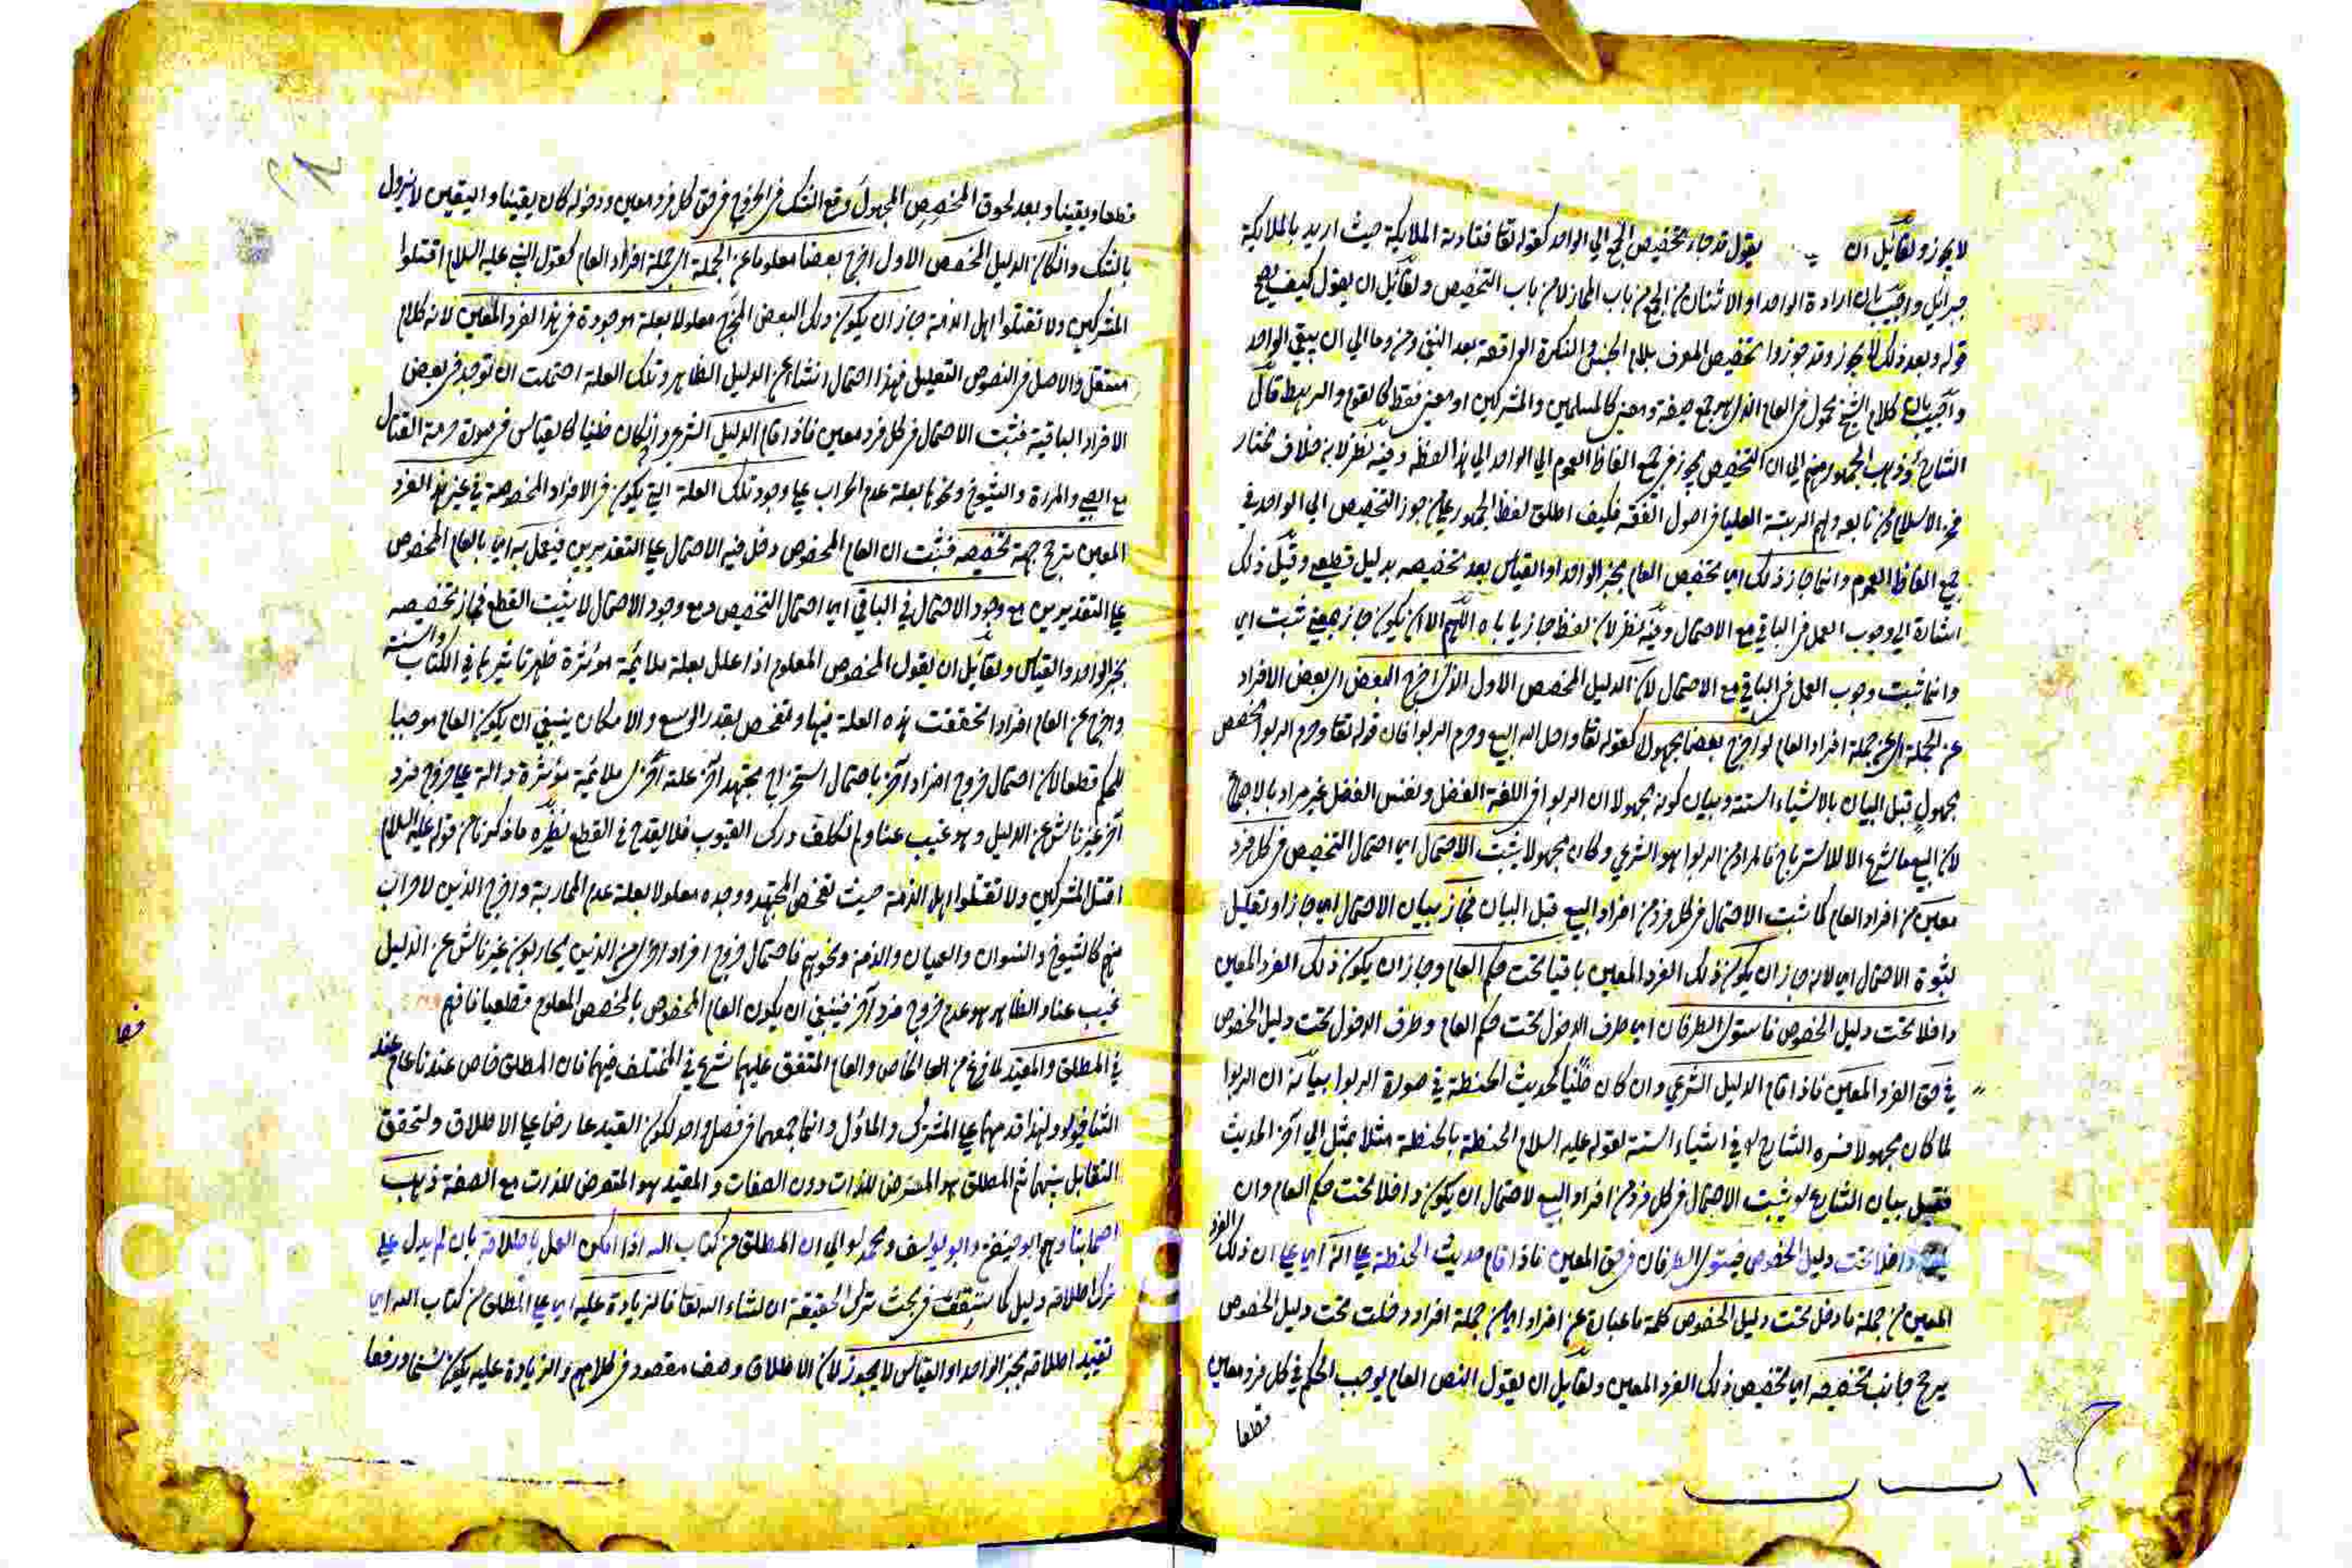 لا يجوز ولقائل ان يقول قد جاء تخصيص الجمع الي الواحد كقوله تعا فنادته الملايكة حيث اريد بالملايكة
جبرائيل واجيب بان ارادة الواحد او الاثنان من الجمع من باب المجاز لا من باب التخصيص ولقائل ان يقول كيف يصح
قوله وبعد ذلك لا يجوز وقد جوزوا تخصيص المعرف بلام الجنس والنكرة الواقعة بعد النفي ومن وما الي ان يبقي الواحد
واجيب بان كلام الشيخ محمول في العام الذي هو جمع صيغة ومعني كالمسلمين والمشركين او معني فقط كالقوم والرهط قال
الشارح وذهب الجمهور منهم الي ان التخصيص يجوز في جميع الفاظ العموم الي الواحد الي هنا لفظه وفيه نظر لانه خلاف مختار
فخر الاسلام ومن تابعه ولهم الرتبة العليا في اصول الفقه فكيف اطلق لفظ الجمهور علي من جوز التخصيص الي الواحد في
جميع الفاظ العموم وانما جاز ذلك اي تخصيص العام بخبر الواحد او القياس بعد تخصيصه بدليل قطعي وقيل ذلك
اشارة الي وجوب العمل في الباقي مع الاحتمال وفيه نظر لان لفظ جاز ياباه اللهم الا ان يكون جاز بمعني ثبت اي
وانما ثبت وجوب العمل في الباقي مع الاحتمال لان الدليل المخصص الاول الذي اخرج البعض اي بعض الافراد
عن الجملة اي عن جملة افراد العام لو اخرج بعضا مجهولا كقوله تعا واحل الله البيع وحرم الربوا فان قوله تعا وحرم الربوا مخصص
مجهول قبل البيان بالاشياء الستة وبيان كونه مجهولا ان الربوا في اللغة الفضل ونفس الفضل غير مراد بالاجماع
لان البيع ما شرع الا للاسترباح فالمراد من الربوا هو الشرعي وكان مجهولا يثبت الاحتمال اي احتمال التخصيص في كل فرد
معين من افراد العام كما ثبت الاحتمال في كل فرد من افراد البيع قبل البيان فجاز بيان الاحتمال اي جاز او تعليل
لثبوة الاحتمال اي لانه جاز ان يكون ذلك الفرد المعين باقيا تحت حكم العام وجاز ان يكون ذلك الفرد المعين
داخلا تحت دليل الخصوص فاستوي الطرفان اي طرف الدخول تحت حكم العام وطرف الدخول تحت دليل الخصوص
في حق الفرد المعين فاذا قام الدليل الشرعي وان كان ظنيا كحديث الحنطة في صورة الربوا بيانه ان الربوا
لما كان مجهولا فسره الشارع في اشياء الستة لقوله عليه السلام الحنطة بالحنطة مثلا بمثل الي آخر الحديث
فقبل بيان الشارع يثبت الاحتمال في كل فرد من افراد البيع لاحتمال ان يكون داخلا تحت حكم العام وان
داخلا تحت دليل الخصوص فيستوي الطرفان في حق المعين فاذا قام حديث الحنطة علي انه اي علي ان ذلك الفرد
المعين من جملة ما دخل تحت دليل الخصوص كلمة ما عبارة عن افراد اي من جملة افراد دخلت تحت دليل الخصوص
يرجح جانب تخصيصه اي تخصيص ذلك الفرد المعين ولقائل ان يقول النص العام يوجب الحكم في كل فرد معين
قطعا
قطعا ويقينا وبعد لحوق المخصص المجهول وقع الشك في الخروج في حق كل فرد معين ودخوله كان يقينا واليقين لا يزول
بالشك وان كان الدليل المخصص الاول اخرج بعضا معلوما عن الجملة اي جملة افراد العام كقول النبي عليه السلام اقتلوا
المشركين ولا تقتلوا اهل الذمة جاز ان يكون ذلك البعض المخرج معلولا بعلة موجودة في هذا الفرد المعين لانه كلام
مستقل والاصل في النصوص التعليل فهذا احتمال انشاء عن الدليل الظاهر وتلك العلة احتملت ان توجد في بعض
الافراد الباقية فثبت الاحتمال في كل فرد معين فاذا قام الدليل الشرعي وان كان ظنيا كالقياس في صورة حرمة القتال
مع الصبي والمراة والشيوخ ونحوها بعلة عدم الحراب علي وجود تلك العلة التي يكون في الافراد المخصوصة في غير هذا الفرد
المعين يرجح جهة تخصيصه فثبت ان العام المخصوص دخل فيه الاحتمال علي التقديرين فيعمل به اي بالعام المخصوص
علي التقديرين مع وجود الاحتمال في الباقي اي احتمال التخصيص ومع وجود الاحتمال لا يثبت القطع فجاز تخصيصه
بخبر الواحد والقياس ولقائل ان يقول المخصوص المعلوم اذا علل بعلة ملائمة مؤثرة ظهر تاثيرها في الكتاب والسنة
واخرج عن العام افراد تحققت هذه العلة فيها وتفحص بقدر الوسع والامكان ينبغي ان يكون العام موجبا
للحكم قطعا لان احتمال خروج افراد آخر باحتمال استخراج مجتهد آخر علة آخري ملائمة مؤثرة دالة علي خروج فرد
آخر غير ناش عن الدليل وهو غيب عنا ولم نكلف درك الغيوب فلا يقدح في القطع نظيره ما ذكرنا من قوله عليه السلام
اقتل المشركين ولا تقتلوا اهل الذمة حيث تفحص المجتهد ووجده معلولا بعلة عدم المحاربة واخرج الذين لا حراب
منهم كالشيوخ والنسوان والعميان والذمة ونحوهم فاحتمال خروج افراد اخر من الذين يحاربون غير ناش عن الدليل
غيب عنا والظاهر هو عدم خروج فرد آخر فينبغي ان يكون العام المخصوص بالمخصص المعلوم قطعيا فافهم
في المطلق والمقيد لما فرغ من الخاص والعام المتفق عليهما شرع في المختلف فيهما فان المطلق خاص عندنا عام عند
الشافعي ولهذا قدمهما علي المشترك والماؤل وانما جمعهما في فصل واحد لكون القيد عارضا علي الاطلاق ولتحقق
التقابل بينهما ثم المطلق هو المتعرض للذات دون الصفات والمقيد هو المتعرض للذات مع الصفة ذهب
اصحابنا وهم ابو حنيفة وابو يوسف ومحمد الي ان المطلق من كتاب الله اذا امكن العمل باطلاقه بان لم يدل علي
ترك اطلاقه دليل كما ستقف في بحث ترك الحقيقة ان شاء الله تعا فالزيادة عليه اي علي المطلق من كتاب الله اي
تقييد اطلاقه بخبر الواحد او القياس لا يجوز لان الاطلاق وصف مقصود في كلامهم والزيادة عليه يكون نسخا ورفعا